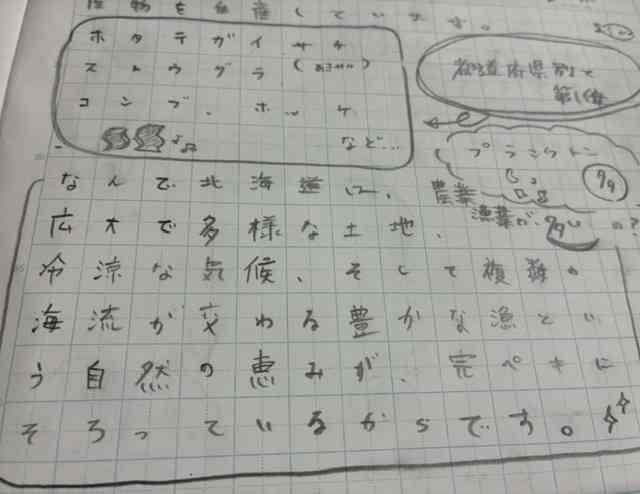 産物を生産しています。
ホタテガイ サケ
スケトウダラ(あさせが)
コンブ、ホッケ
など…
都道府県別で
第1位
プランクトン
なんで北海道に、農業
漁業が、多いの?
広大で多様な土地、
冷涼な気候、そして複数の
海流が交わる豊かな漁とい
う自然の恵みが、完ペキに
そろっているからです。